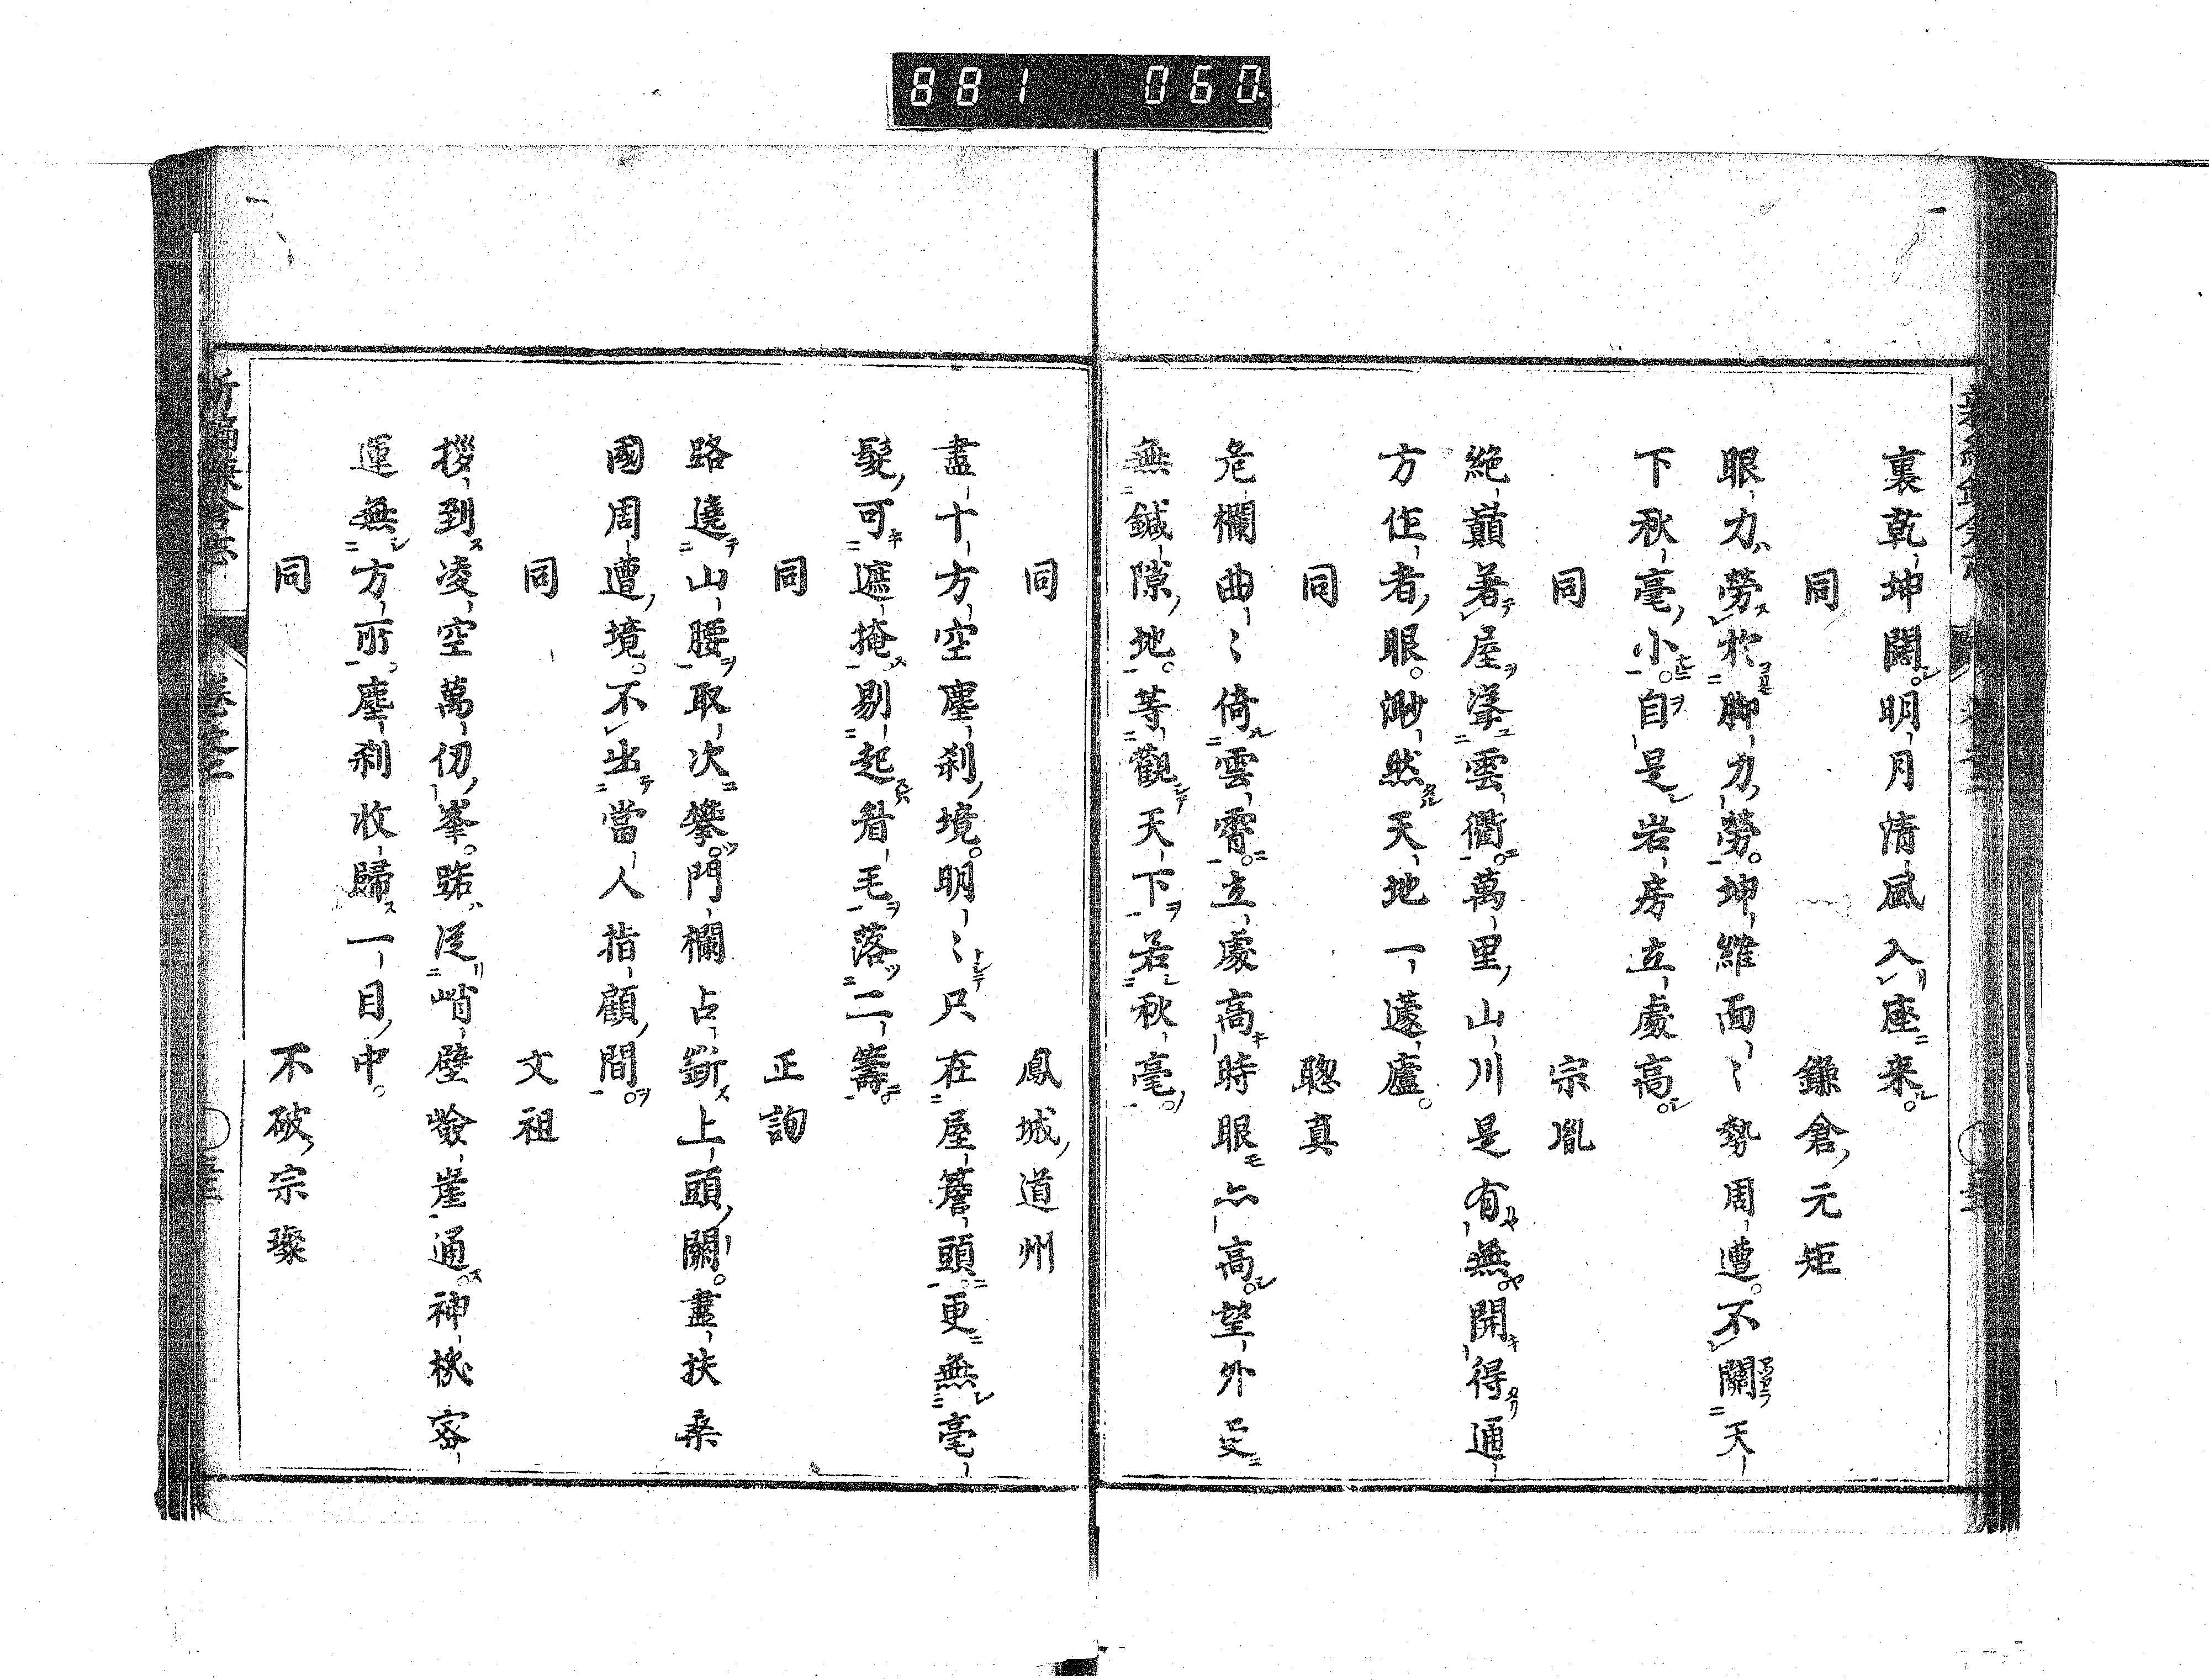 881 060
裏乾坤闊。明月清風入座来。
同 鎌倉元矩
眼力勞於脚力勞。坤維面〻勢周遭。不關天
下秋毫小。自是岩房立處高。
同 宗胤
絶巓著屋窣雲衢。萬里山川是有無。開得通
方作者眼。渺然天地一蘧廬。
同 聰真
危欄曲〻倚雲霄。立處高時眼亦高。望外更
無鍼隙地。等觀天下若秋毫。
同 鳳城道州
盡十方空塵刹境。明〻只在屋簷頭。更無毫
髮可遮掩。剔起眉毛落二籌。
同 正詢
路遶山腰取次攀。門欄占斷上頭關。盡扶桑
國周遭境。不出當人指顧間。
同 文祖
拶到凌空萬仞峯。踞從峭壁嶮崖通。神機密
運無方所。塵刹收歸一目中。
同 不破宗璨
新編鎌倉志 卷之二